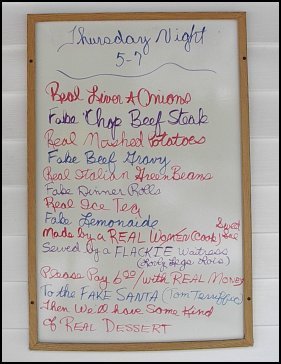 Thursday Night
5-7
Real Liver & Onions
Fake "Chop Beef Steak
Real Mashed Potatoes
Fake Beef Gravy
Real Italian Green Beans
Fake Dinner Rolls
Real Ice Tea
Fake Lemonaide
Made by a REAL Women (Cook) Sweet Sue
Served by a FLACKIE Waitress
(Lois)
Please Pay 6.00/with REAL Money
To the FAKE SANTA (Tom Terriffic)
Then We'll have Some Kind
of REAL DESSERT